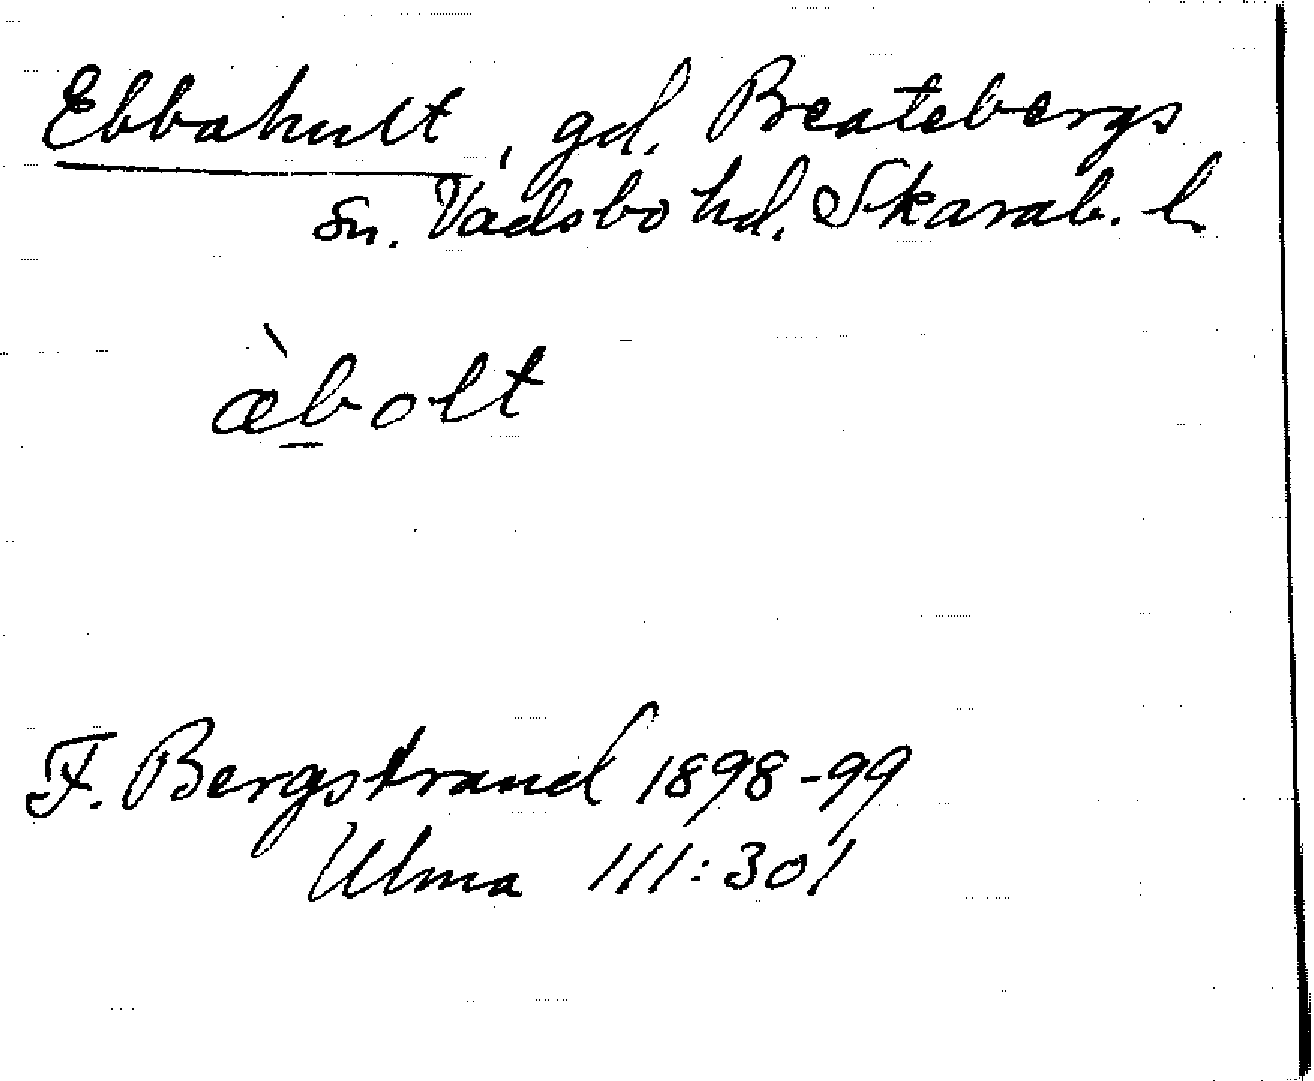 Ebbahult, gd. Beatebergs
sn. Vadsbo hd. Skarab. l.
æ̀b̲olt
F. Bergstrand 1898-99
Ulma 111:301